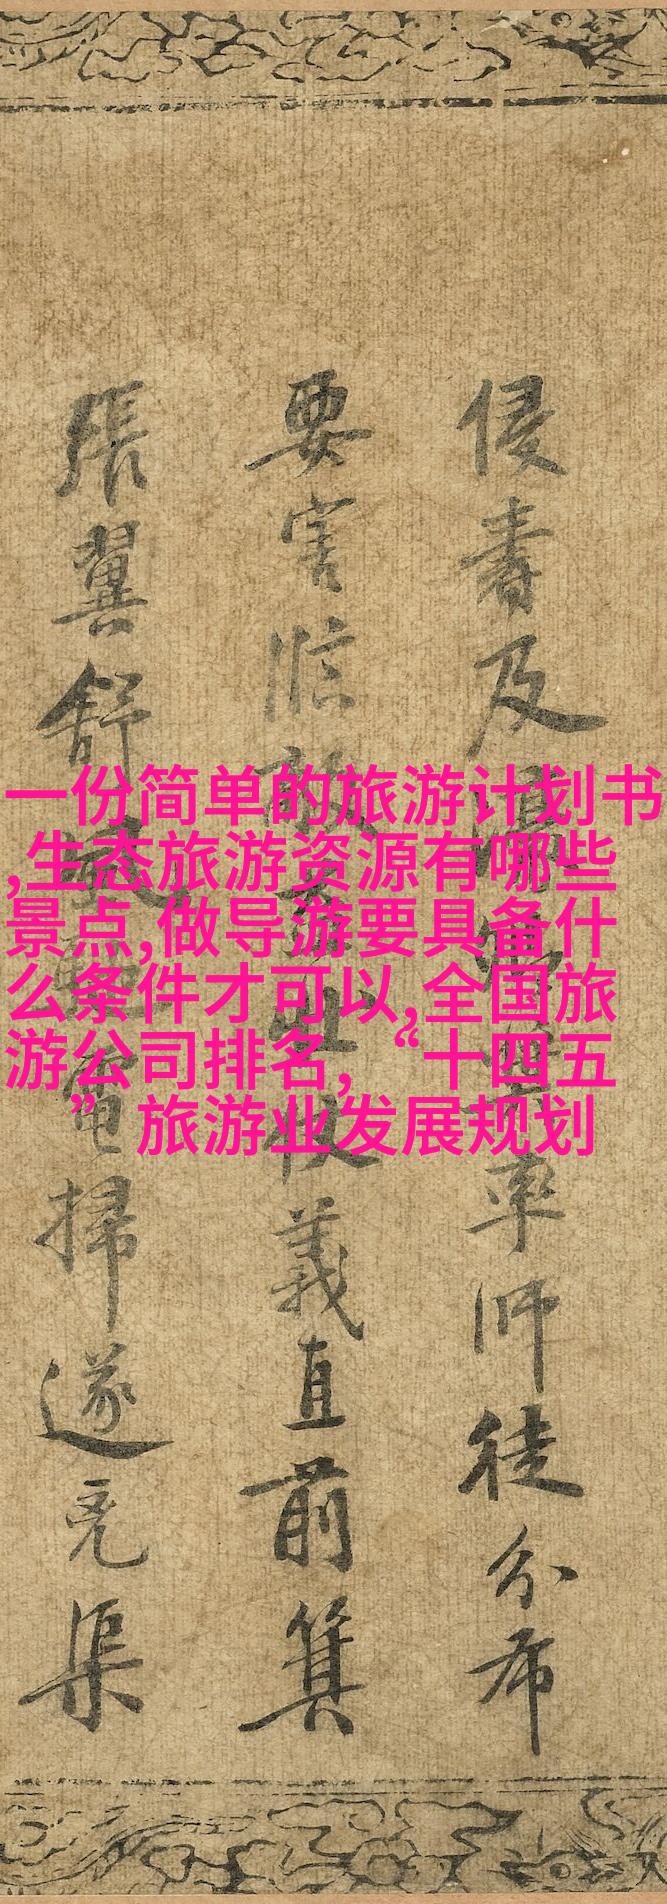 一份简单的旅游计划书
,生态旅游资源有哪些
景点,做导游要具备什
么条件才可以,全国旅
游公司排名,“十四五
”旅游业发展规划
侵書及營率師徒分布
要害臨敵仗義直前箕
張翼舒風馳電掃遂克渠